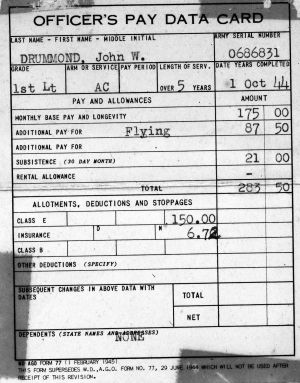 OFFICER'S PAY DATA CARD
LAST NAME - FIRST NAME - MIDDLE INITIAL
ARMY SERIAL NUMBER
DRUMMOND, John W.
0686831
GRADE
ARM OR SERVICE
PAY PERIOD
LENGTH OF SERV.
DATE YEARS COMPLETED
1st Lt
AC
OVER 5 YEARS
1 Oct 44
PAY AND ALLOWANCES
AMOUNT
MONTHLY BASE PAY AND LONGEVITY
175 00
ADDITIONAL PAY FOR Flying
87 50
ADDITIONAL PAY FOR
SUBSISTENCE (30 DAY MONTH)
21 00
RENTAL ALLOWANCE
-
TOTAL
283 50
ALLOTMENTS, DEDUCTIONS AND STOPPAGES
CLASS E
150.00
INSURANCE
D
N
6.72
CLASS B
OTHER DEDUCTIONS (SPECIFY)
SUBSEQUENT CHANGES IN ABOVE DATA WITH DATES
TOTAL
NET
DEPENDENTS (STATE NAMES AND ADDRESSES)
NONE
WD AGO FORM 77 (1 FEBRUARY 1945)
THIS FORM SUPERSEDES W.D., A.G.O. FORM NO. 77, 29 JUNE 1944 WHICH WILL NOT BE USED AFTER
RECEIPT OF THIS REVISION.